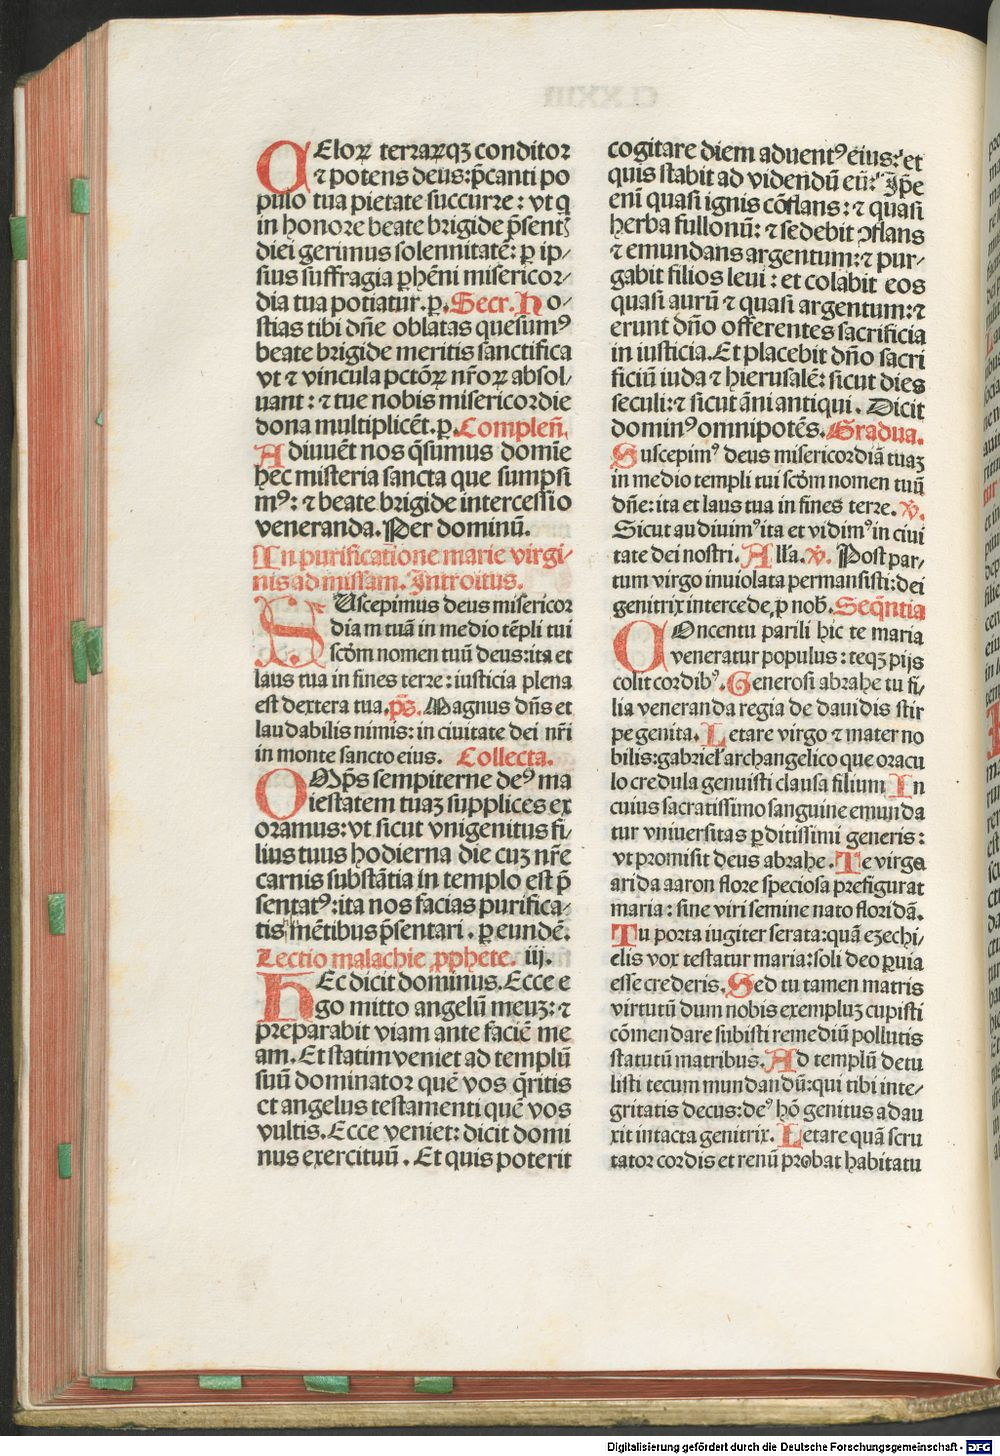 CEloꝝ terrarꝙꝫ conditor
⁊ potens deus: p̄canti po
pulo tua pietate succurre: vt q̄
in honore beate brigide p̄sentꝭ
diei gerimus solennitatē: ꝑ ip-
sius suffragia ꝑhēni misericor-
dia tua potiatur. ꝑ. Secr. Ho-
stias tibi dn̄e oblatas quesumꝰ
beate brigide meritis sanctifica
vt ⁊ vincula pctōꝝ nr̄oꝝ absol-
uant: ⁊ tue nobis misericordie
dona multiplicēt. ꝑ. Compleñ.
Adiuuēt nos q̄sumus domīe
hec misteria sancta que sumpsi
mꝰ: ⁊ beate brigide intercessio
veneranda. Per dominū.
In purificatione marie virgi-
nis ad missam. Introitus.
SUscepimus deus misericor
diam tuā in medio tēpli tui
scōm nomen tuū deus: ita et
laus tua in fines terre: iusticia plena
est dextera tua. p̄s. Magnus dn̄s et
laudabilis nimis: in ciuitate dei nr̄i
in monte sancto eius. Collecta.
OMp̄s sempiterne deꝰ ma
iestatem tuaꝫ supplices ex
oramus: vt sicut vnigenitus fi-
lius tuus hodierna die cuꝫ nr̄e
carnis substātia in templo est p̄
sentatꝰ: ita nos facias purifica-
tis mētibus p̄sentari. ꝑ eundē.
Lectio malachie ꝓphete. iij.
HEc dicit dominus. Ecce e
go mitto angelū meuꝫ: ⁊
preparabit viam ante faciē me
am. Et statim veniet ad templū
suū dominator quē vos q̄ritis
et angelus testamenti quē vos
vultis. Ecce veniet: dicit domi
nus exercituū. Et quis poterit
cogitare diem aduentꝰ eius: et
quis stabit ad videndū eū: Ip̄e
eni quasi ignis cōflans: ⁊ quasi
herba fullonū: ⁊ sedebit ꝯflans
⁊ emundans argentum: ⁊ pur-
gabit filios leui: et colabit eos
quasi aurū ⁊ quasi argentum: ⁊
erunt dn̄o offerentes sacrificia
in iusticia. Et placebit dn̄o sacri
ficiū iuda ⁊ hierusalē: sicut dies
seculi: ⁊ sicut āni antiqui. Dicit
dominꝰ omnipotēs. Gradua.
Suscepimꝰ deus misericordiā tuaꝫ
in medio templi tui scōm nomen tuū
dn̄e: ita et laus tua in fines terre. ꝟ.
Sicut audiuimꝰ ita et vidimꝰ in ciui
tate dei nostri. Alla. ꝟ. Post par-
tum virgo inuiolata permansisti: dei
genitrix intercede ꝓ nob̄. Seq̄ntia
COncentu parili hic te maria
veneratur populus: teqꝫ pijs
colit cordibꝰ. Generosi abrahe tu fi-
lia veneranda regia de dauidis stir
pe genita. Letare virgo ⁊ mater no
bilis: gabriel' archangelico que oracu
lo credula genuisti clausa filium In
cuius sacratissimo sanguine emunda
tur vniuersitas ꝑditissimi generis:
vt promisit deus abrahe. Te virga
arida aaron flore speciosa prefigurat
maria: sine viri semine nato floridā.
Tu porta iugiter serata: quā ezechi-
elis vox testatur maria: soli deo ꝑuia
esse crederis. Sed tu tamen matris
virtutū dum nobis exempluꝫ cupisti
cōmendare subisti remediū pollutis
statutū matribus. Ad templū detu
listi tecum mundandū: qui tibi inte-
gritatis decus: deꝰ hō genitus adau
xit intacta genitrix. Letare quā scru
tator cordis et renū probat habitatu
Digitalisierung gefördert durch die Deutsche Forschungsgemeinschaft - DFG